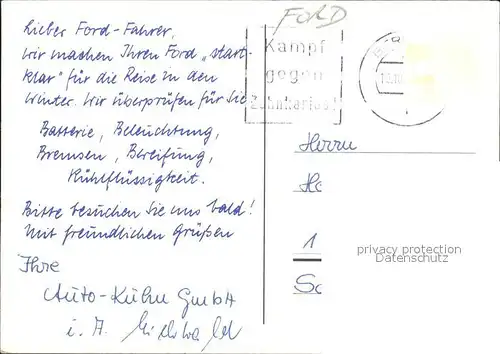 Lieber Ford-Fahrer,
wir machen Ihren Ford „start-
klar“ für die Reise in den
Winter. Wir überprüfen für Sie
Batterie, Beleuchtung,
Bremsen, Bereifung,
Kühlflüssigkeit.
Bitte besuchen Sie uns bald!
Mit freundlichen Grüßen
Ihre
Auto-Kuhn GmbH
i. A.
FORD
Kampf
gegen
Zahnkaries!
Herrn
1
privacy protection
Datenschutz